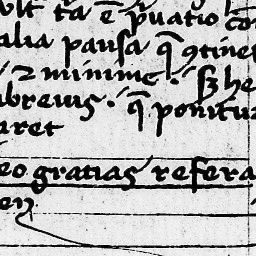 ult ta ē p̄uatio cōn
alia pausa q̄ ꝯtinet
⁊ minime · sꝫ he
breuis · q̄ ponitur
aret
eo gratias refera
en